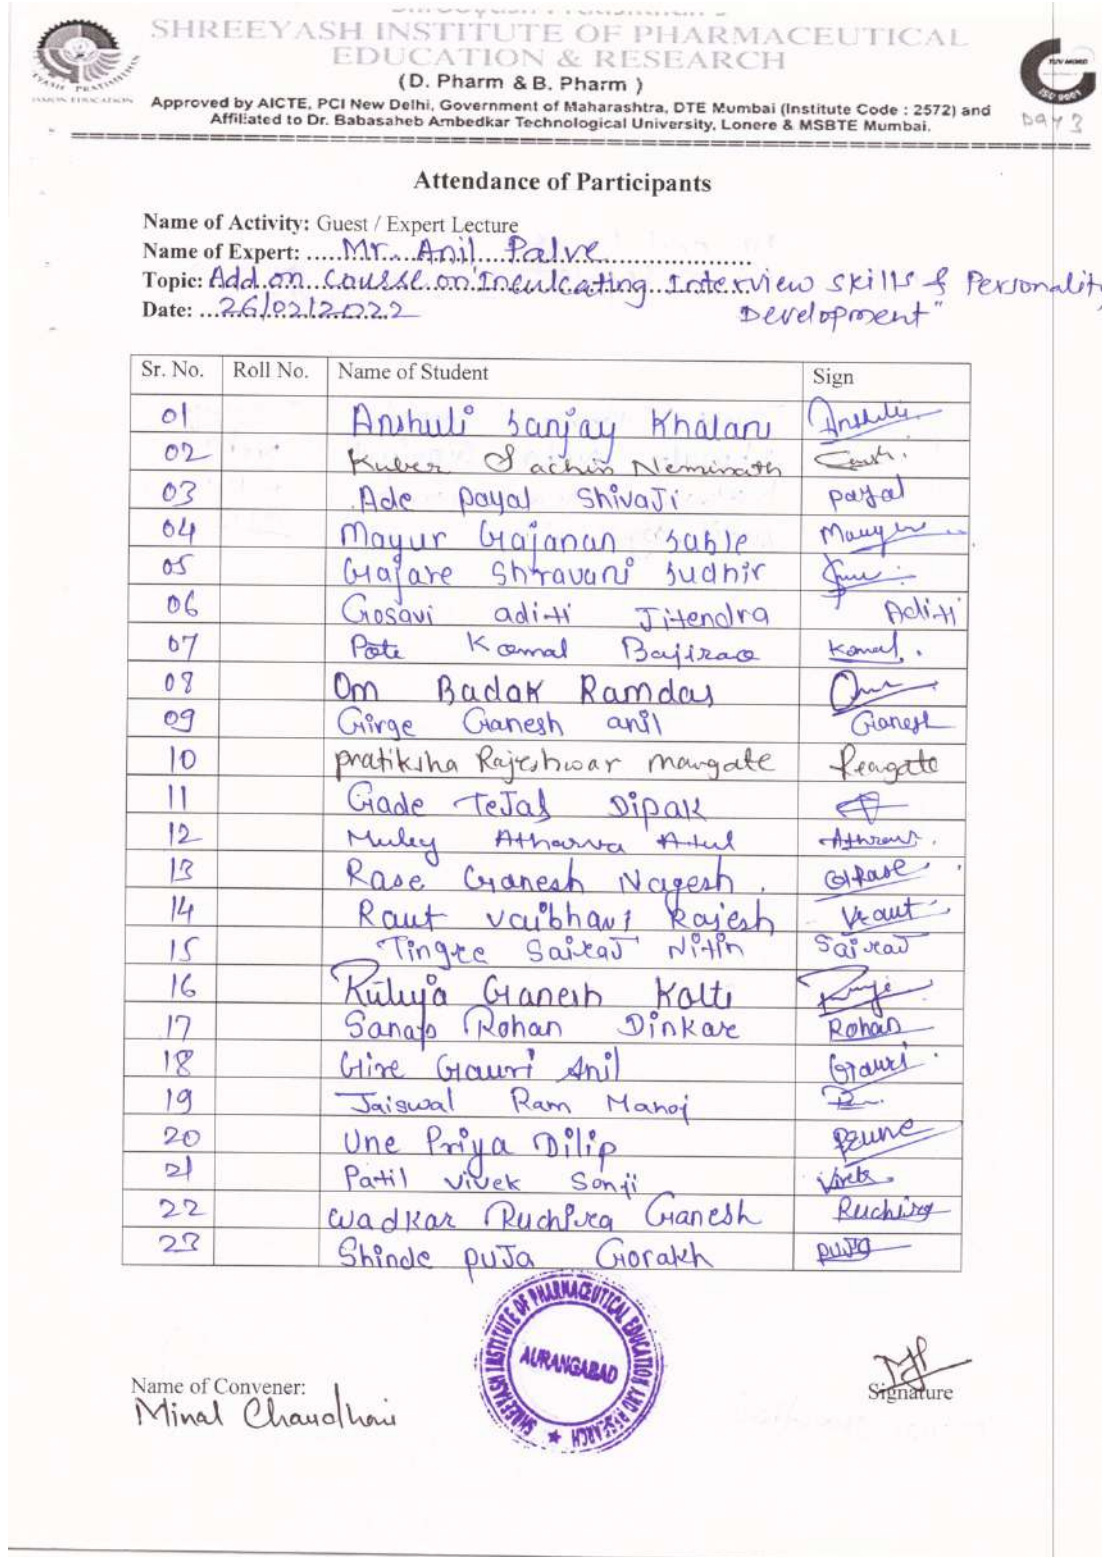 SHREEYASH INSTITUTE OF PHARMACEUTICAL
EDUCATION & RESEARCH
(D. Pharm & B. Pharm )
Approved by AICTE, PCI New Delhi, Government of Maharashtra, DTE Mumbai (Institute Code : 2572) and
Affiliated to Dr. Babasaheb Ambedkar Technological University, Lonere & MSBTE Mumbai.
ISO 9001
Day 3
Attendance of Participants
Name of Activity: Guest / Expert Lecture
Name of Expert: Mr. Anil Palve
Topic: Add on Course on "Inculcating Interview skills & Personality
Development"
Date: 26/02/2022
Sr. No. Roll No. Name of Student Sign
01 Anshuli Sanjay Khalane
02 Kuber Sachin Neminath
03 Ade payal ShivaJi payal
04 Mayur Gajanan Sable
05 Gajare Shravani Sudhir
06 Gosavi aditi Jitendra Aditi
07 Pote Komal Bajirao Komal.
08 Om Badak Ramdas Om
09 Girge Ganesh anil Ganesh
10 pratiksha Rajeshwar mangate
11 Gade TeJal Dipak
12 Muley Atharva Atul
13 Rase Ganesh Nagesh. GNRase
14 Raut vaibhavi Rajesh VRaut
15 Tingre SairaJ Nitin SairaJ
16 Ganesh Kolte
17 Sanap Rohan Dinkar Rohan
18 Gire Gauri Anil Gauri
19 Jaiswal Ram Manoj
20 Une Priya Dilip PDune
21 Patil vivek Sonji Vivek
22 Wadkar Ruchira Ganesh Ruchira
23 Shinde puJa Gorakh puJa
SHREEYASH INSTITUTE OF PHARMACEUTICAL EDUCATION AND RESEARCH
AURANGABAD
Name of Convener:
Minal Chaudhari
Signature